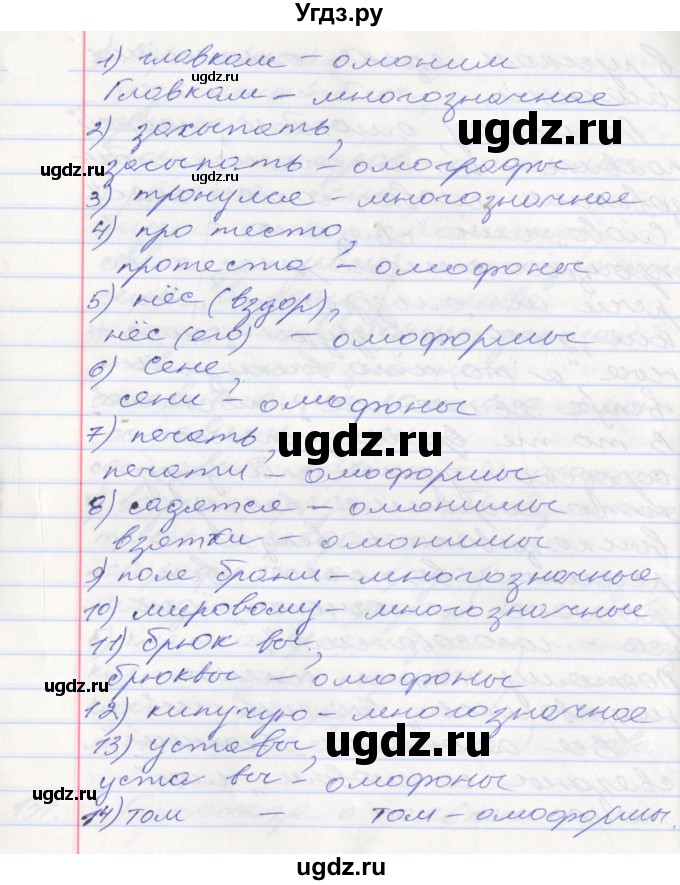 Угдз.ру
1) главкам – омоним
Главкам – многозначное
2) захыпать,
засыпать – омографы
3) тронулся – многозначное
4) про тесто,
протеста – омофоны
5) нёс (вздор),
нёс (его) – омоформы
6) Сене,
сени – омофоны
7) печать,
печати – омоформы
8) садятся – омонимы
взятки – омонимы
9) поле брани – многозначные
10) мировому – многозначные
11) брюк вы,
брюквы – омофоны
12) кипучую – многозначное
13) уставы,
уста вы – омофоны
14) том – том – омоформы.
ugdz.ru
ugdz.ru
ugdz.ru
ugdz.ru
ugdz.ru
ugdz.ru
ugdz.ru
ugdz.ru
ugdz.ru
ugdz.ru
ugdz.ru